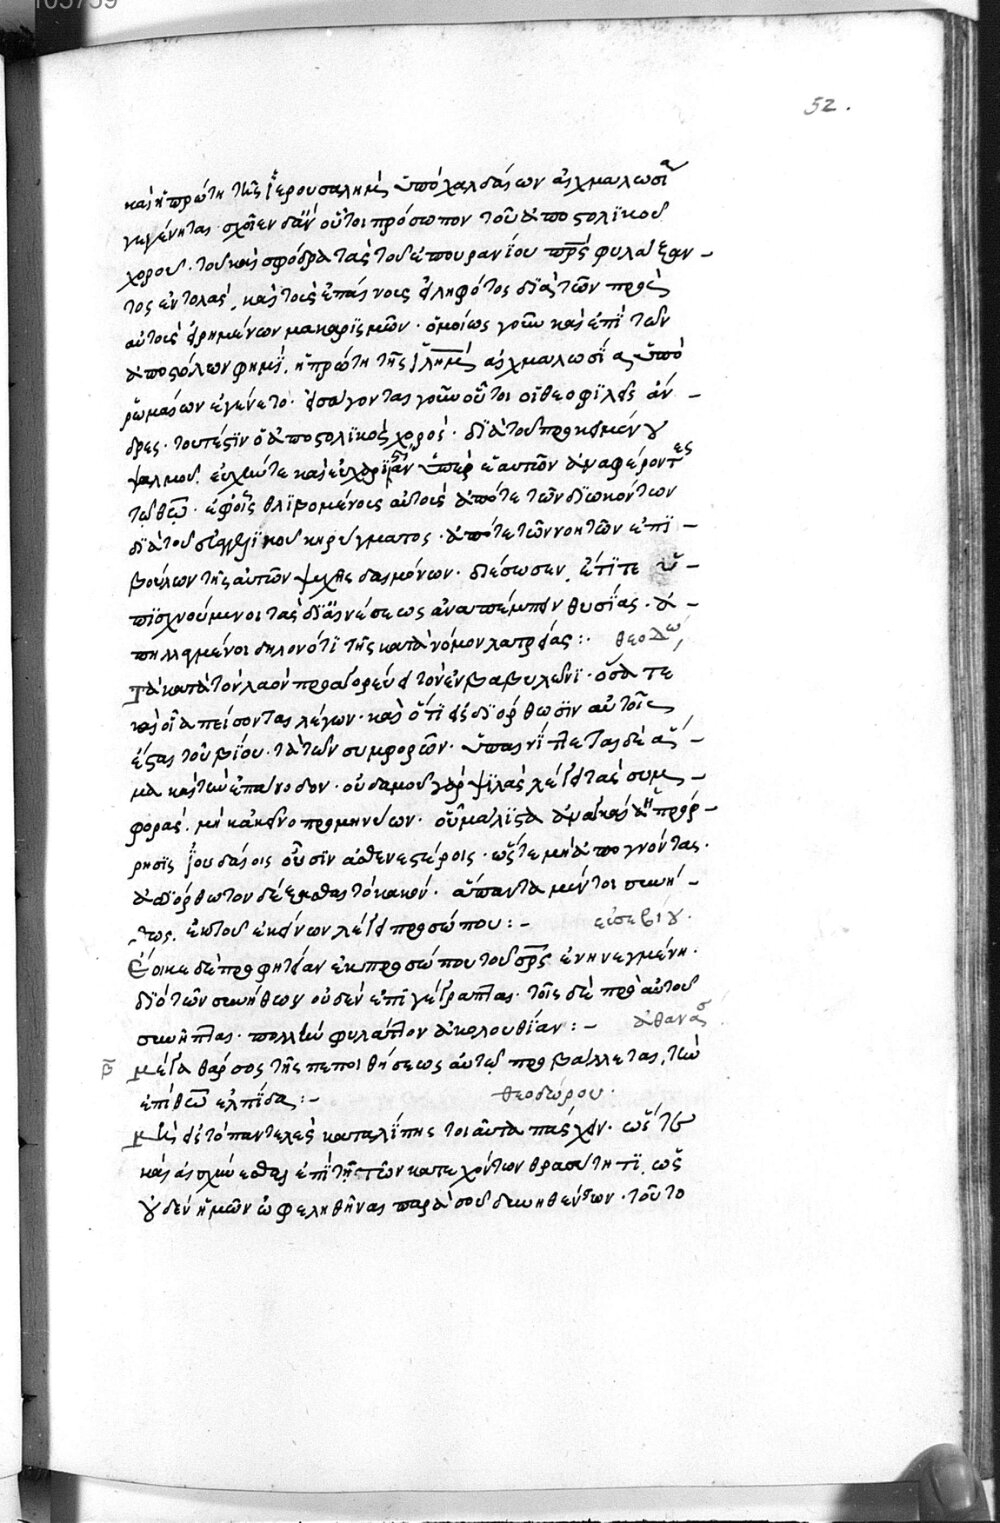 105759
52.
καὶ ἡ πρώτη τῆς ἱερουσαλὴμ ὑπὸ χαλδαίων αἰχμαλωσία
γεγένηται· σχοῖεν δ' ἂν οὗτοι πρόσωπον τοῦ ἀποστολικοῦ
χοροῦ· τοῦ καὶ σφόδρα τὰς τοῦ ἐπουρανίου πρς φυλάξαν-
τος ἐντολάς, καὶ τοὺς ἐπαίνους εἰληφότος διὰ τῶν πρὸς
αὐτοὺς εἰρημένων μακαρισμῶν· ὁμοίως γοῦν καὶ ἐπὶ τῶν
ἀποστόλων φημὶ, ἡ πρώτη τῆς ἱλημ αἰχμαλωσία ὑπὸ
ῥωμαίων ἐγένετο· εἰσάγονται γοῦν οὗτοι οἱ θεοφιλεῖς ἄν-
δρες· τουτέστιν ὁ ἀποστολικὸς χορὸς· διὰ τοῦ προκειμένου
ψαλμοῦ, εὐχάς τε καὶ εὐχαριστίαν ὑπὲρ ἑαυτῶν ἀναφέροντες
τῷ θῶ· ἐφ' οἷς θλιβομένους αὐτοὺς ἀπό τε τῶν διωκόντων
διὰ τοῦ εὐαγγελικοῦ κηρύγματος· ἀπό τε τῶν νοητῶν ἐπι-
βούλων τῆς αὐτῶν ψυχῆς δαιμόνων· διέσωσεν, ἔτι τε ὑ-
πισχνούμενοι τὰς δι' αἰνέσεως ἀναπέμπειν θυσίας· ἀ-
πηλλαγμένοι δηλονότι τῆς κατὰ νόμον λατρείας:· θεοδώ
Τὰ κατὰ τὸν λαὸν προαγορεύει τὸν ἐν βαβυλῶνι· ὅσα τε
καὶ οἷα πείσονται λέγων· καὶ ὅτι εἰς διόρθωσιν αὐτοῖς
ἔσται τοῦ βίου· τὰ τῶν συμφορῶν· ὑπαινίττεται δὲ ἅ-
μα καὶ τὴν ἐπάνοδον· οὐδαμοῦ γὰρ ψιλὰς λέγει τὰς συμ-
φορὰς, μὴ κἀκεῖνο προμηνύων· οὗ μάλιστα ἀναγκαία ἡ πρόρ-
ρησις ἰουδαίοις οὖσιν ἀσθενεστέροις· ὥστε μὴ ἀπογνόντας·
ἀδιόρθωτον δέξασθαι τὸ κακόν· ἅπαντα μέντοι συνή-
θως, ἐκ τοῦ ἐκείνων λέγει προσώπου:- εὐσεβίου·
Ἔοικε δὲ προφητείαν ἐκ προσώπου τοῦ σρς ἐνηνεγμένη·
διὸ τῶν συνήθων οὐδὲν ἐπιγέγραπται· τοῖς δὲ πρὸ αὐτοῦ
συνῆπται· πολλὴν φυλάττον ἀκολουθίαν:- ἀθανασ
β Μέγα θάρσος τῆς πεποιθήσεως αὐτῷ προβάλλεται, τὴν
ἐπὶ θῶ ἐλπίδα:- θεοδώρου·
Μὴ εἰς τὸ παντελὲς καταλίπῃς τοιαῦτα πάσχειν· ὥστε
καὶ αἰσχύνεσθαι ἐπὶ τῇ τῶν κατεχόντων θρασύτητι, ὡς
οὐδὲν ἡμῶν ὠφεληθῆναι παρὰ σοῦ δεινηθέντων· τοῦτο